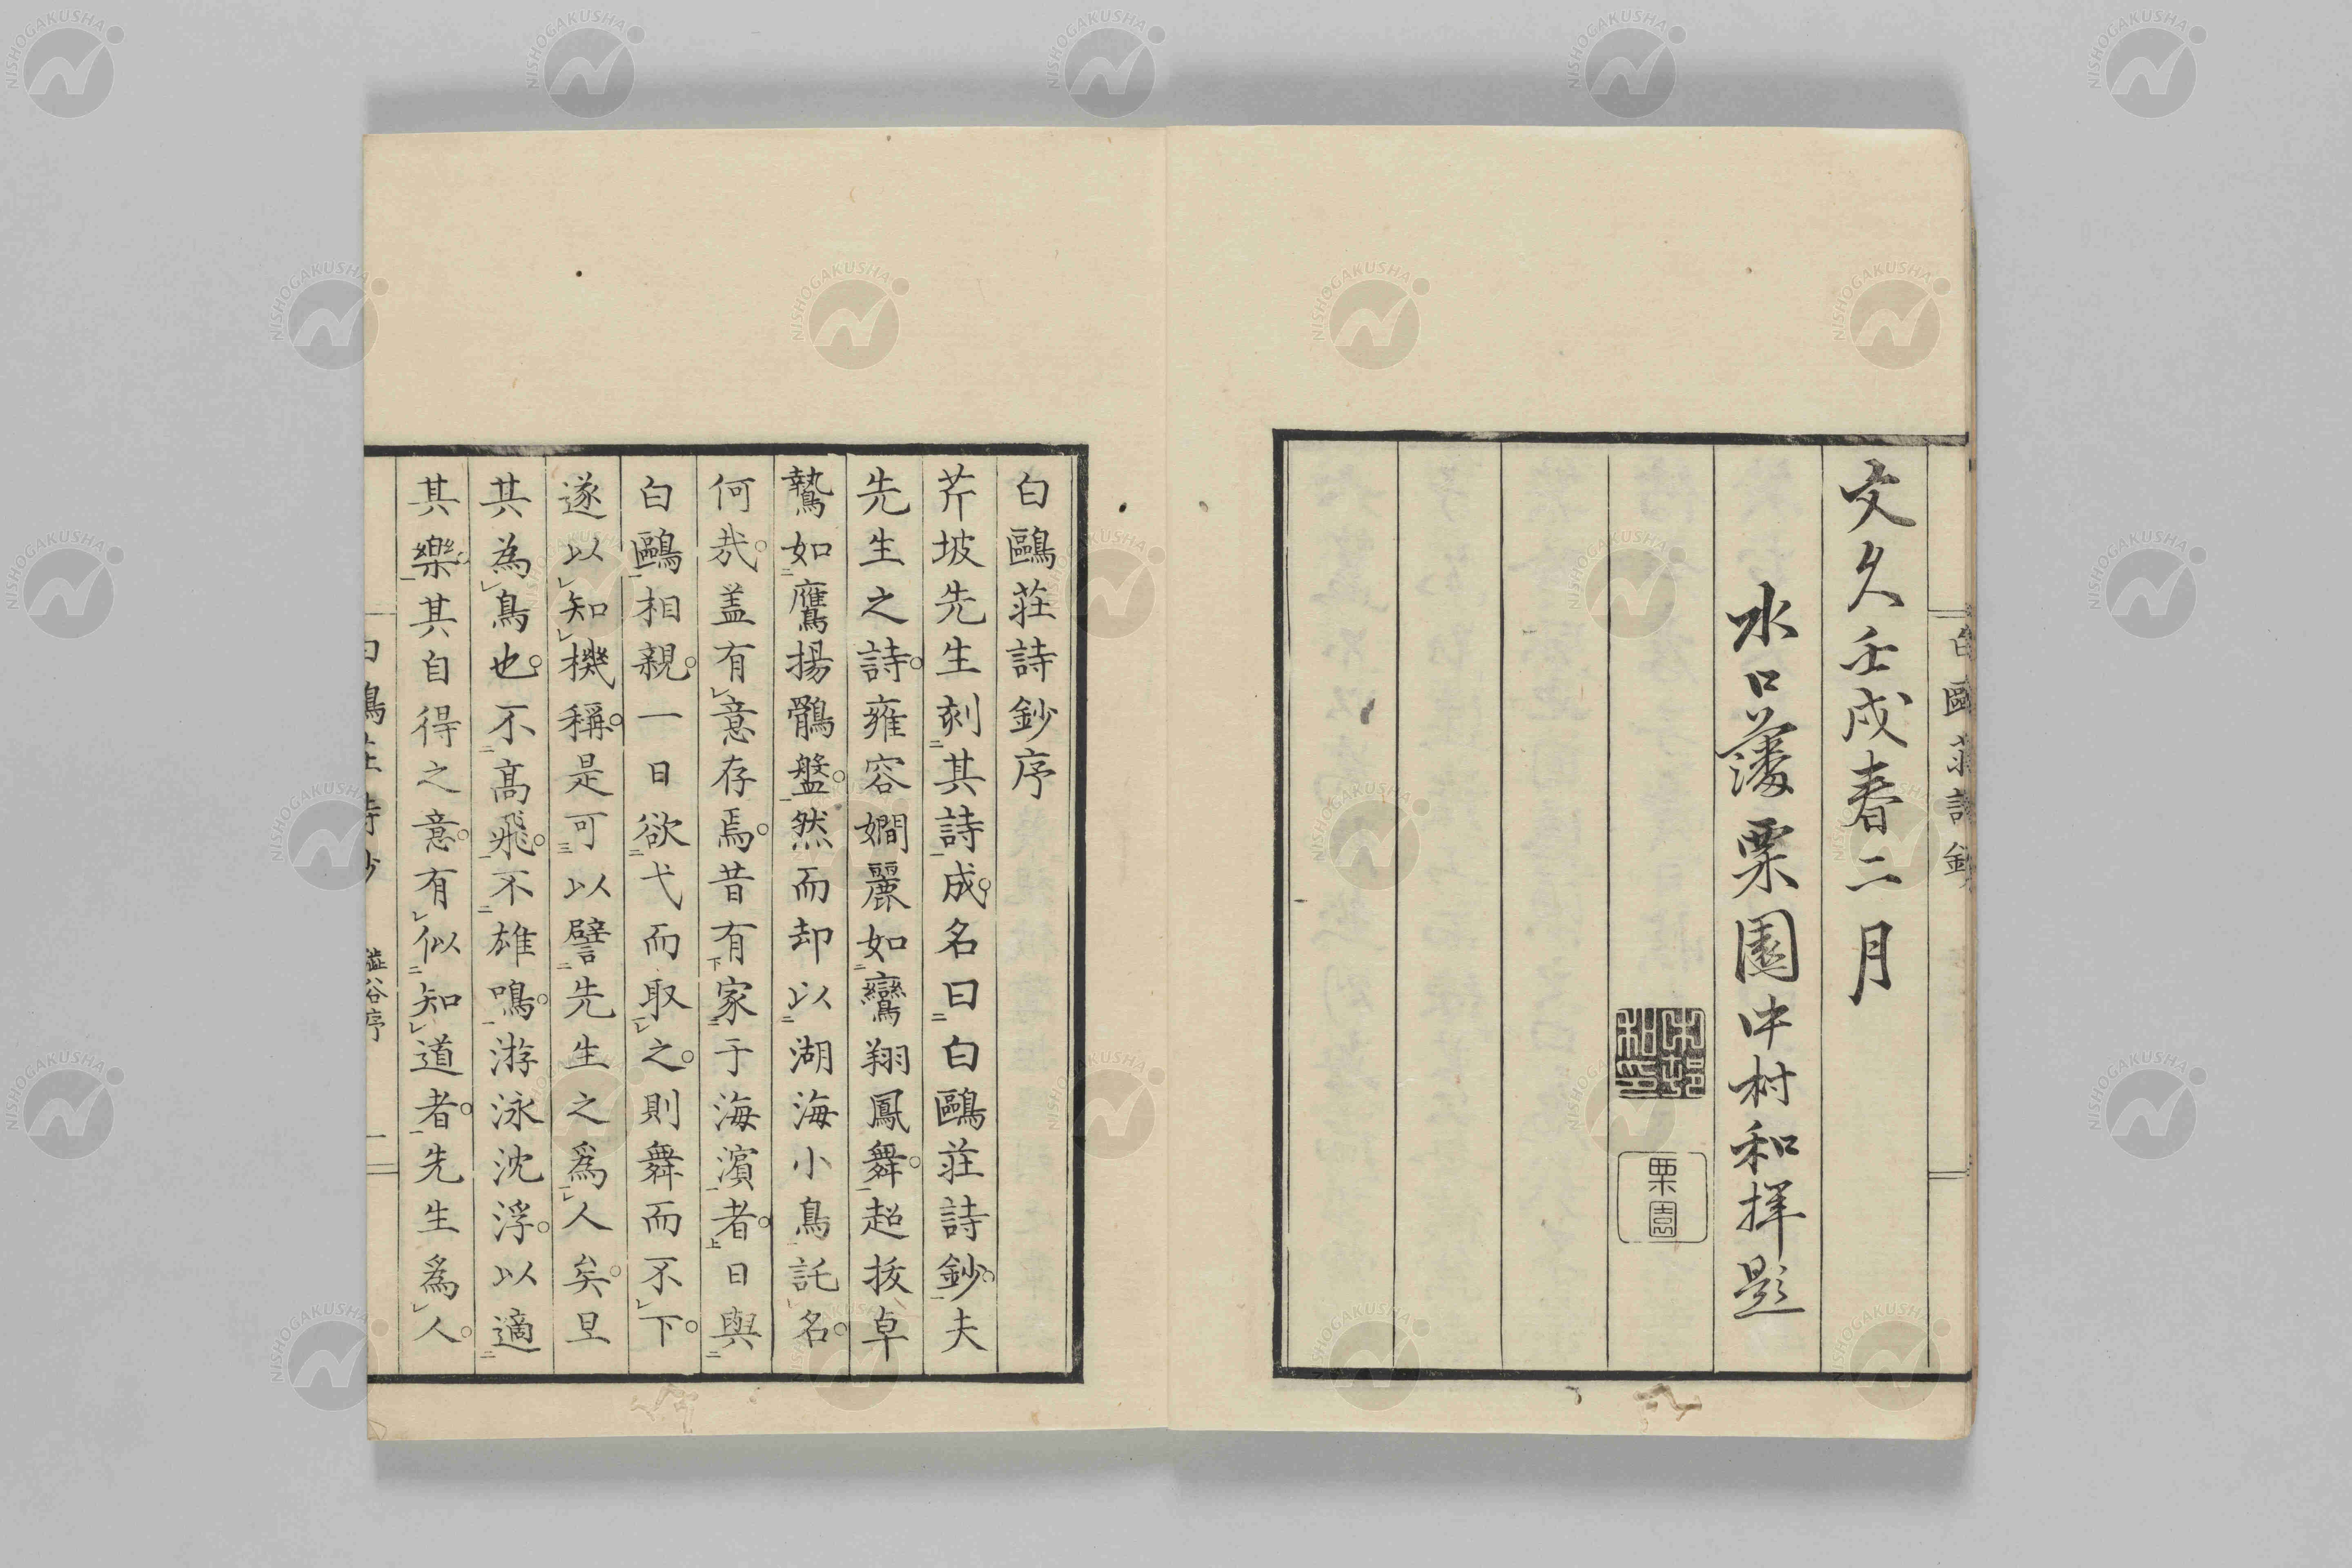 文久壬戌春二月
水口藩栗園中村和拝題
栗園
白鷗莊詩鈔序
芹坡先生刻其詩成名曰白鷗莊詩鈔夫
先生之詩雍容嫺麗如鸞翔鳳舞超拔卓
鷙如鷹揚鶻盤然而却以湖海小鳥託名
何哉盖有意存焉昔有家于海濱者日與
白鷗相親一日欲弋而取之則舞而不下
遂以知機稱是可以譬先生之爲人矣且
其為鳥也不高飛不雄鳴游泳沈浮以適
其樂其自得之意有似知道者先生爲人
NISHOGAKUSHA